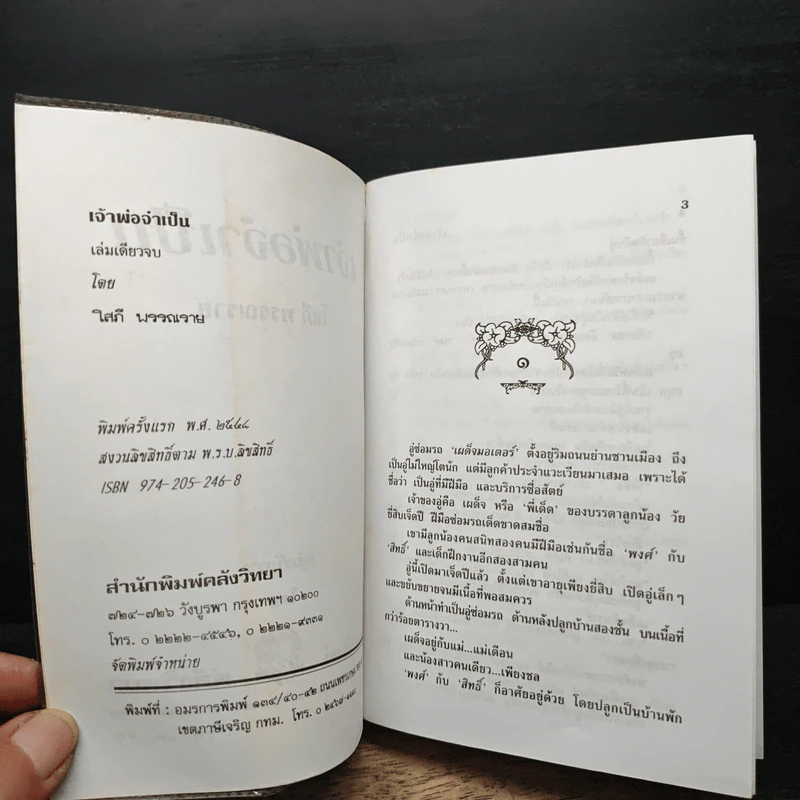 เจ้าพ่อจำเป็น
เล่มเดียวจบ
โดย
โสภี พรรณราย
พิมพ์ครั้งแรก พ.ศ. ๒๕๔๘
สงวนลิขสิทธิ์ตาม พ.ร.บ.ลิขสิทธิ์
ISBN 974-205-246-8
สำนักพิมพ์คลังวิทยา
๗๒๔-๗๒๖ วังบูรพา กรุงเทพฯ ๑๐๒๐๐
โทร. ๐ ๒๒๒๒-๔๕๔๖, ๐ ๒๒๒๑-๙๓๓๑
จัดพิมพ์จำหน่าย
พิมพ์ที่ : อมรการพิมพ์ ๑๓๔/๔๐-๔๒ ถนนเพชรเกษม
เขตภาษีเจริญ กทม. โทร.
3
๑
อู่ซ่อมรถ 'เผด็จมอเตอร์' ตั้งอยู่ริมถนนย่านชานเมือง ถึง
เป็นอู่ไม่ใหญ่โตนัก แต่มีลูกค้าประจำแวะเวียนมาเสมอ เพราะได้
ชื่อว่า เป็นอู่ที่มีฝีมือ และบริการซื่อสัตย์
เจ้าของอู่คือ เผด็จ หรือ 'พี่เด็ด' ของบรรดาลูกน้อง วัย
ยี่สิบเจ็ดปี ฝีมือซ่อมรถเด็ดขาดสมชื่อ
เขามีลูกน้องคนสนิทสองคนมีฝีมือเช่นกันชื่อ 'พงศ์' กับ
'สิทธิ์' และเด็กฝึกงานอีกสองสามคน
อู่นี้เปิดมาเจ็ดปีแล้ว ตั้งแต่เขาอายุเพียงยี่สิบ เปิดอู่เล็กๆ
และขยับขยายจนมีเนื้อที่พอสมควร
ด้านหน้าทำเป็นอู่ซ่อมรถ ด้านหลังปลูกบ้านสองชั้น บนเนื้อที่
กว่าร้อยตารางวา...
เผด็จอยู่กับแม่...แม่เดือน
และน้องสาวคนเดียว...เพียงชล
'พงศ์' กับ 'สิทธิ์' ก็อาศัยอยู่ด้วย โดยปลูกเป็นบ้านพัก